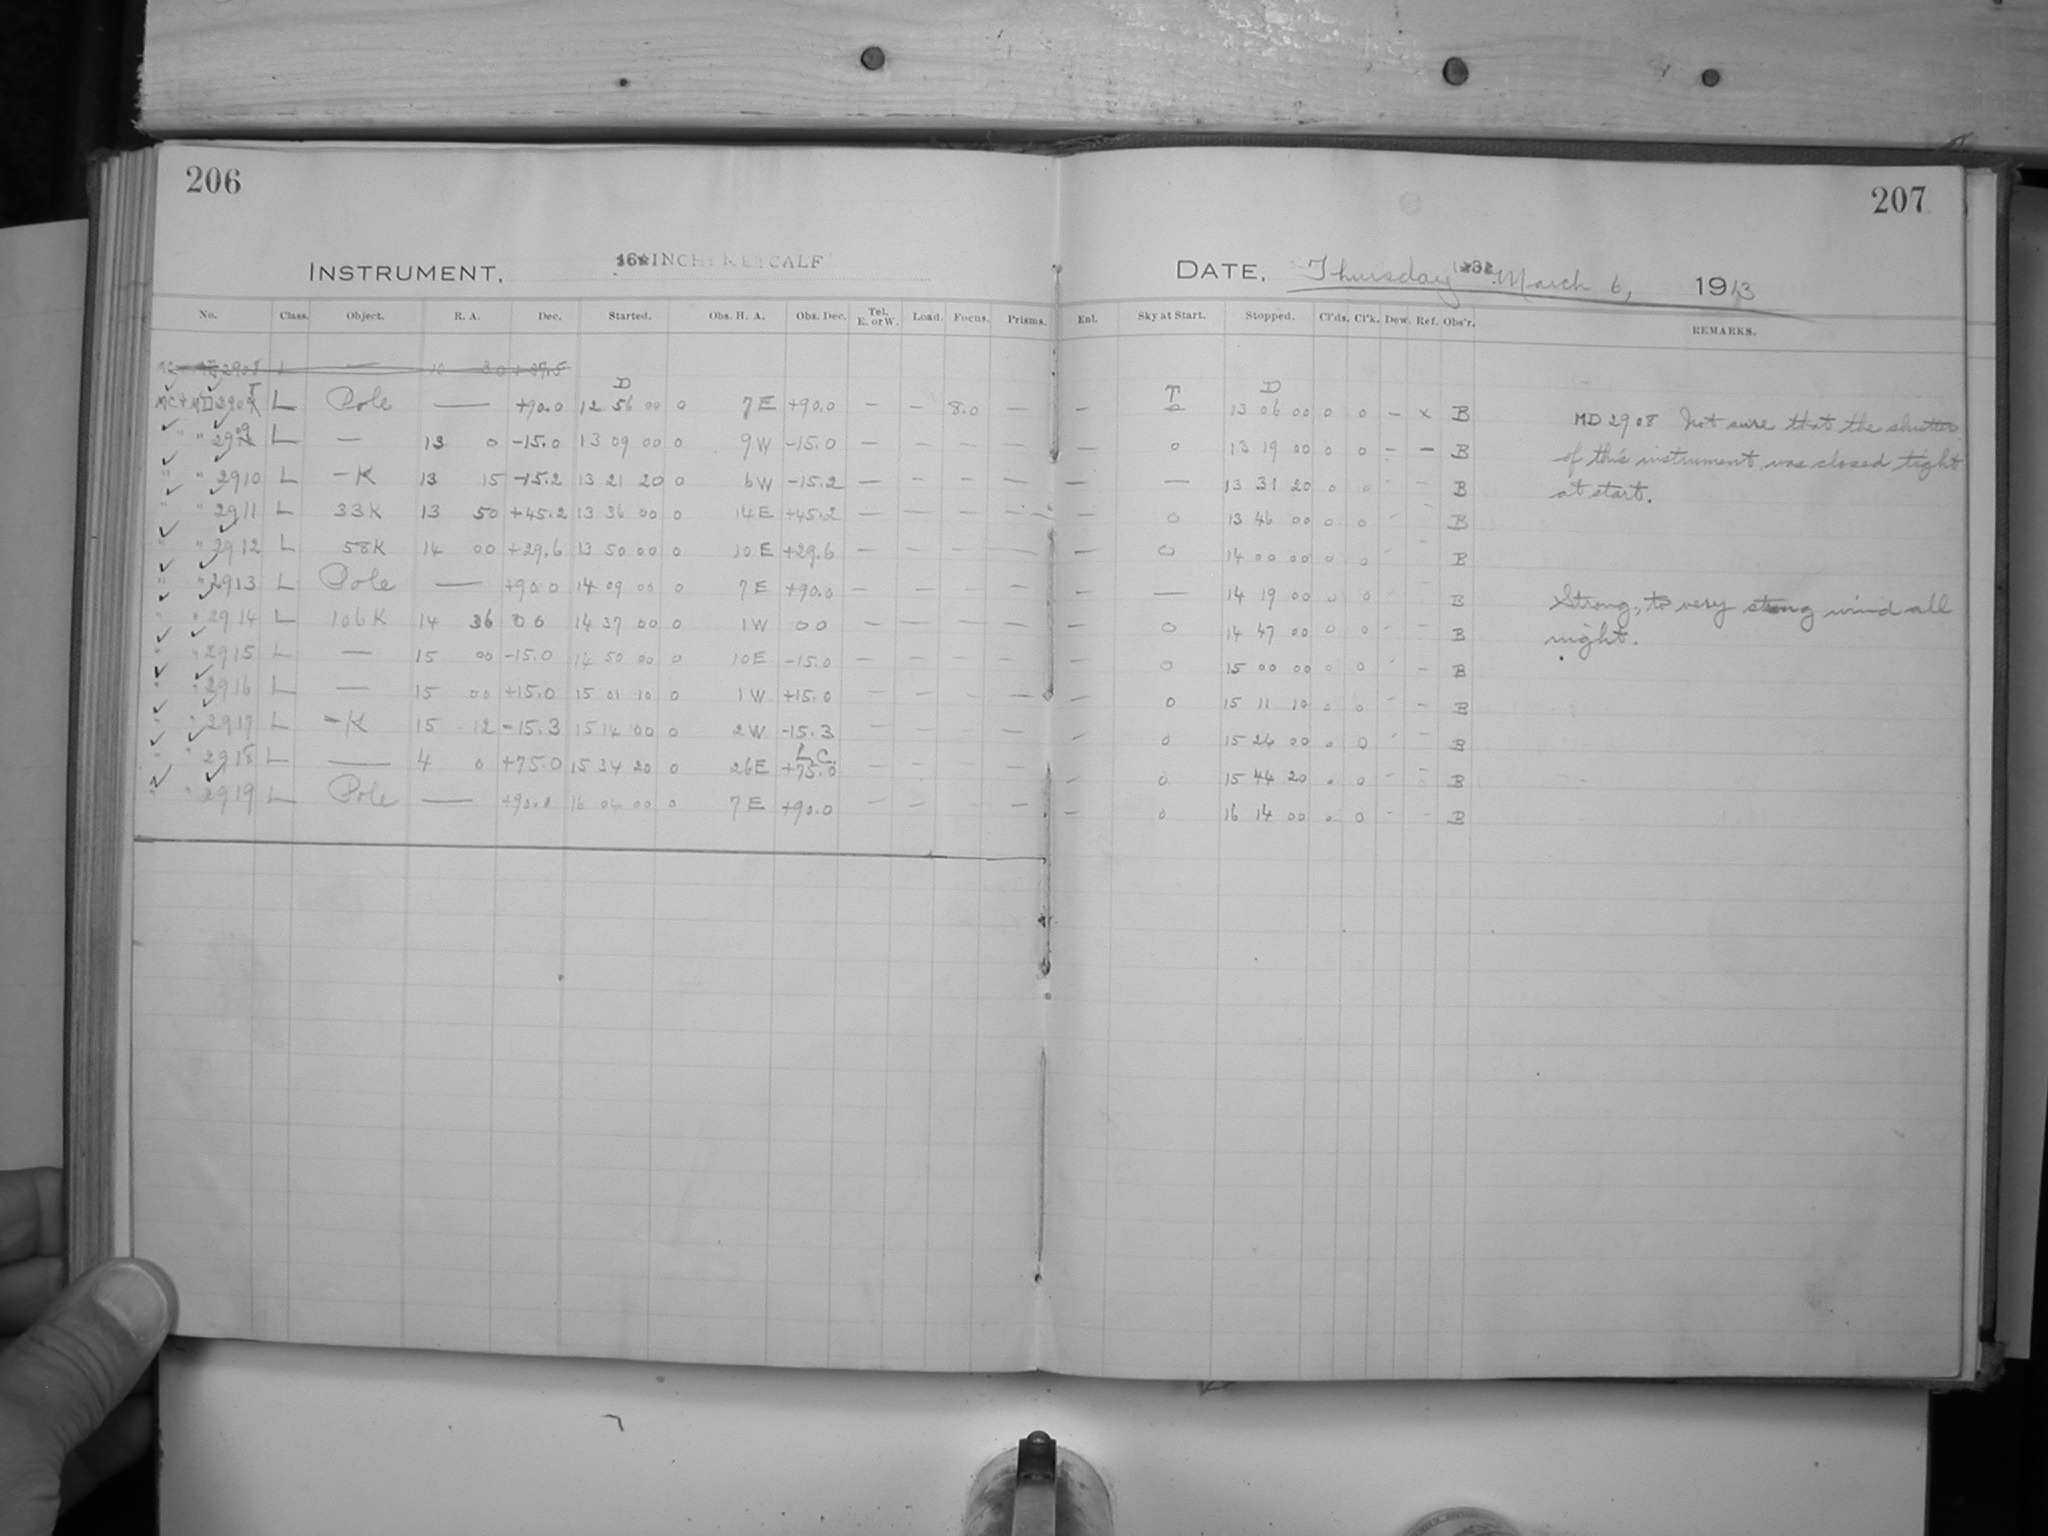 206
207
INSTRUMENT, 16 INCH METCALF
DATE, Thursday March 6, 1913
No. Class. Object. R. A. Dec. Started. Obs. H. A. Obs. Dec. Tel. E. or W. Load. Focus. Prisms. Enl. Sky at Start. Stopped. Cl'ds. Cl'k. Dew. Ref. Obs'r. REMARKS.
D T D
L Pole — +90.0 12 56 00 0 7 E +90.0 — — 8.0 — — 13 06 00 0 0 – x B MD 2908 Not sure that the shutter
" " 2909 L — 13 0 -15.0 13 09 00 0 9 W -15.0 — — — — — 0 13 19 00 0 0 – – B of this instrument was closed tight
" " 2910 L -K 13 15 -15.2 13 21 20 0 6 W -15.2 — — — — — — 13 31 20 0 0 - - B at start.
" " 2911 L 33K 13 50 +45.2 13 36 00 0 14 E +45.2 — — — — — 0 13 46 00 0 0 - - B
" " 2912 L 58K 14 00 +29.6 13 50 00 0 10 E +29.6 — — — — — 0 14 00 00 0 0 - - B
" " 2913 L Pole — +90.0 14 09 00 0 7 E +90.0 — — — — — 14 19 00 0 0 - - B Strong, to very strong wind all
" " 2914 L 106K 14 36 00 14 37 00 0 1 W 00 — — — — — 0 14 47 00 0 0 - - B night.
" " 2915 L — 15 00 -15.0 14 50 00 0 10 E -15.0 — — — — — 0 15 00 00 0 0 - - B
" " 2916 L — 15 00 +15.0 15 01 10 0 1 W +15.0 — — — — — 0 15 11 10 0 0 - - B
" " 2917 L -K 15 12 -15.3 15 14 00 0 2 W -15.3 — — — 0 15 24 00 0 0 - - B
L.C.
" " 2918 L — 4 0 +75.0 15 34 20 0 26 E +75.0 — — — — 0 15 44 20 0 0 - - B
" " 2919 L Pole — +90.0 16 04 00 0 7 E +90.0 — — — — 0 16 14 00 0 0 - - B